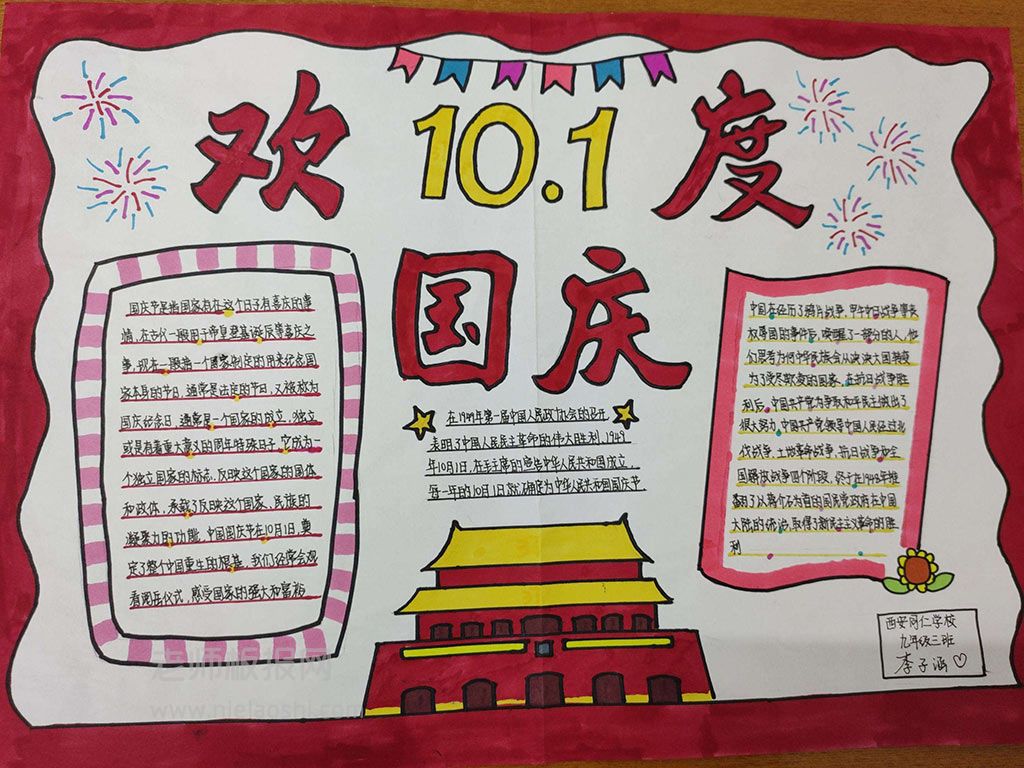 欢 10.1 度
国庆
国庆节是指国家有在这个日子有喜庆的事
情,在古代一般用于帝皇登基诞辰等喜庆之
事,现在一般指一个国家制定的用来纪念国
家本身的节日,通常是法定的节日,又被称为
国庆纪念日,通常是一个国家的成立、独立
或是有着重大意义的周年特殊日子,它成为一
个独立国家的标志,反映这个国家的国体
和政体,承载了反映这个国家、民族的
凝聚力的功能,中国国庆节在10月1日,奠
定了整个中国重生的根基,我们经常会观
看阅兵仪式,感受国家的强大和富裕
在1949年第一届中国人民政协会的召开,
表明了中国人民民主革命的伟大胜利,1949
年10月1日,在毛主席的宣告中华人民共和国成立,
每一年的10月1日就确定为中华人民共和国国庆节
中国在经历了鸦片战争,甲午中日战争等丧
权辱国的事件后,唤醒了一部分的人,他
们思考为何中华民族会从泱泱大国转变
为了受尽欺凌的国家,在抗日战争胜
利后,中国共产党为争取和平民主做出了
很大努力,中国共产党领导中国人民经过北
伐战争,土地革命战争,抗日战争和全
国解放战争四个阶段,终于在1949年推
翻了以蒋介石为首的国民党政府在中国
大陆的统治,取得了新民主主义革命的胜
利
西安同仁学校
九年级三班
李子涵
老师板报网